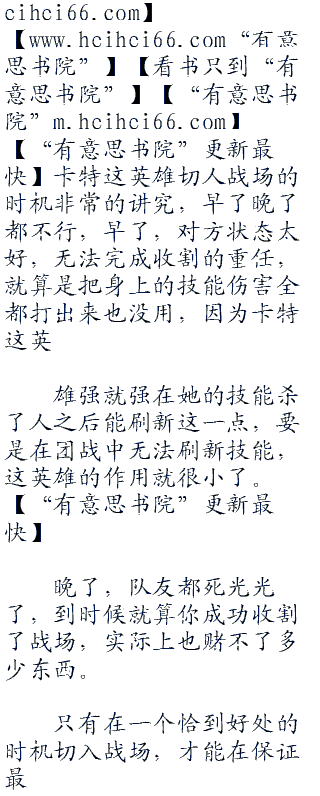 cihci66.com】
【www.hcihci66.com“有意
思书院”】【看书只到“有
意思书院”】【“有意思书
院”m.hcihci66.com】
【“有意思书院”更新最
快】卡特这英雄切人战场的
时机非常的讲究，早了晚了
都不行，早了，对方状态太
好，无法完成收割的重任，
就算是把身上的技能伤害全
都打出来也没用，因为卡特
这英
雄强就强在她的技能杀
了人之后能刷新这一点，要
是在团战中无法刷新技能，
这英雄的作用就很小了。
【“有意思书院”更新最
快】
晚了，队友都死光光
了，到时候就算你成功收割
了战场，实际上也赌不了多
少东西。
只有在一个恰到好处的
时机切入战场，才能在保证
最